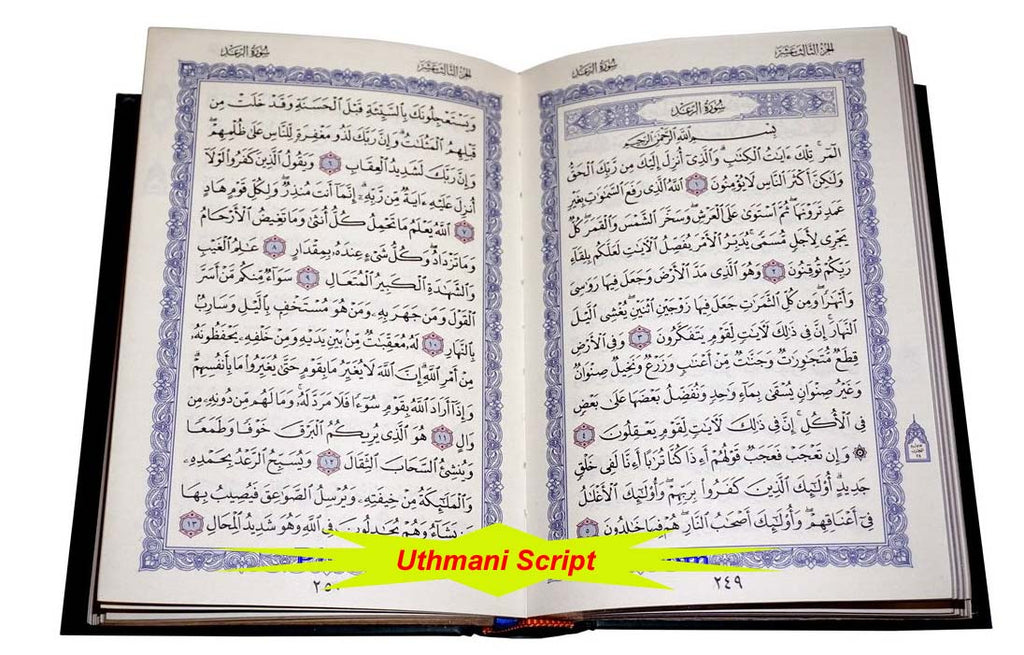 الجزء الثالث عشر
سورة الرعد
سُورَةُ الرَّعْدِ
بِسْمِ اللَّهِ الرَّحْمَٰنِ الرَّحِيمِ
الٓمٓر ۚ تِلْكَ ءَايَٰتُ ٱلْكِتَٰبِ ۗ وَٱلَّذِىٓ أُنزِلَ إِلَيْكَ مِن رَّبِّكَ ٱلْحَقُّ
وَلَٰكِنَّ أَكْثَرَ ٱلنَّاسِ لَا يُؤْمِنُونَ ١ ٱللَّهُ ٱلَّذِى رَفَعَ ٱلسَّمَٰوَٰتِ بِغَيْرِ
عَمَدٍ تَرَوْنَهَا ۖ ثُمَّ ٱسْتَوَىٰ عَلَى ٱلْعَرْشِ ۖ وَسَخَّرَ ٱلشَّمْسَ وَٱلْقَمَرَ ۖ كُلٌّ
يَجْرِى لِأَجَلٍ مُّسَمًّى ۚ يُدَبِّرُ ٱلْأَمْرَ يُفَصِّلُ ٱلْءَايَٰتِ لَعَلَّكُم بِلِقَآءِ
رَبِّكُمْ تُوقِنُونَ ٢ وَهُوَ ٱلَّذِى مَدَّ ٱلْأَرْضَ وَجَعَلَ فِيهَا رَوَٰسِىَ
وَأَنْهَٰرًا ۖ وَمِن كُلِّ ٱلثَّمَرَٰتِ جَعَلَ فِيهَا زَوْجَيْنِ ٱثْنَيْنِ ۖ يُغْشِى ٱلَّيْلَ
ٱلنَّهَارَ ۚ إِنَّ فِى ذَٰلِكَ لَءَايَٰتٍ لِّقَوْمٍ يَتَفَكَّرُونَ ٣ وَفِى ٱلْأَرْضِ
قِطَعٌ مُّتَجَٰوِرَٰتٌ وَجَنَّٰتٌ مِّنْ أَعْنَٰبٍ وَزَرْعٌ وَنَخِيلٌ صِنْوَانٌ
وَغَيْرُ صِنْوَانٍ يُسْقَىٰ بِمَآءٍ وَٰحِدٍ وَنُفَضِّلُ بَعْضَهَا عَلَىٰ بَعْضٍ
فِى ٱلْأُكُلِ ۚ إِنَّ فِى ذَٰلِكَ لَءَايَٰتٍ لِّقَوْمٍ يَعْقِلُونَ ٤
۞ وَإِن تَعْجَبْ فَعَجَبٌ قَوْلُهُمْ أَءِذَا كُنَّا تُرَٰبًا أَءِنَّا لَفِى خَلْقٍ
جَدِيدٍ ۗ أُو۟لَٰٓئِكَ ٱلَّذِينَ كَفَرُوا۟ بِرَبِّهِمْ ۖ وَأُو۟لَٰٓئِكَ ٱلْأَغْلَٰلُ
فِىٓ أَعْنَاقِهِمْ ۖ وَأُو۟لَٰٓئِكَ أَصْحَٰبُ ٱلنَّارِ ۖ هُمْ فِيهَا خَٰلِدُونَ ٥
٢٤٩
سورة الرعد
الجزء الثالث عشر
وَيَسْتَعْجِلُونَكَ بِٱلسَّيِّئَةِ قَبْلَ ٱلْحَسَنَةِ وَقَدْ خَلَتْ مِن
قَبْلِهِمُ ٱلْمَثُلَٰتُ ۗ وَإِنَّ رَبَّكَ لَذُو مَغْفِرَةٍ لِّلنَّاسِ عَلَىٰ ظُلْمِهِمْ ۖ
وَإِنَّ رَبَّكَ لَشَدِيدُ ٱلْعِقَابِ ٦ وَيَقُولُ ٱلَّذِينَ كَفَرُوا۟ لَوْلَآ
أُنزِلَ عَلَيْهِ ءَايَةٌ مِّن رَّبِّهِۦٓ ۗ إِنَّمَآ أَنتَ مُنذِرٌ ۖ وَلِكُلِّ قَوْمٍ هَادٍ
٧ ٱللَّهُ يَعْلَمُ مَا تَحْمِلُ كُلُّ أُنثَىٰ وَمَا تَغِيضُ ٱلْأَرْحَامُ
وَمَا تَزْدَادُ ۖ وَكُلُّ شَىْءٍ عِندَهُۥ بِمِقْدَارٍ ٨ عَٰلِمُ ٱلْغَيْبِ
وَٱلشَّهَٰدَةِ ٱلْكَبِيرُ ٱلْمُتَعَالِ ٩ سَوَآءٌ مِّنكُم مَّنْ أَسَرَّ
ٱلْقَوْلَ وَمَن جَهَرَ بِهِۦ وَمَنْ هُوَ مُسْتَخْفٍۭ بِٱلَّيْلِ وَسَارِبٌۢ
بِٱلنَّهَارِ ١٠ لَهُۥ مُعَقِّبَٰتٌ مِّنۢ بَيْنِ يَدَيْهِ وَمِنْ خَلْفِهِۦ يَحْفَظُونَهُۥ
مِنْ أَمْرِ ٱللَّهِ ۗ إِنَّ ٱللَّهَ لَا يُغَيِّرُ مَا بِقَوْمٍ حَتَّىٰ يُغَيِّرُوا۟ مَا بِأَنفُسِهِمْ ۗ
وَإِذَآ أَرَادَ ٱللَّهُ بِقَوْمٍ سُوٓءًا فَلَا مَرَدَّ لَهُۥ ۚ وَمَا لَهُم مِّن دُونِهِۦ مِن
وَالٍ ١١ هُوَ ٱلَّذِى يُرِيكُمُ ٱلْبَرْقَ خَوْفًا وَطَمَعًا
وَيُنشِئُ ٱلسَّحَابَ ٱلثِّقَالَ ١٢ وَيُسَبِّحُ ٱلرَّعْدُ بِحَمْدِهِۦ
وَٱلْمَلَٰٓئِكَةُ مِنْ خِيفَتِهِۦ وَيُرْسِلُ ٱلصَّوَٰعِقَ فَيُصِيبُ بِهَا
يَشَآءُ وَهُمْ يُجَٰدِلُونَ فِى ٱللَّهِ وَهُوَ شَدِيدُ ٱلْمِحَالِ ١٣
Uthmani Script